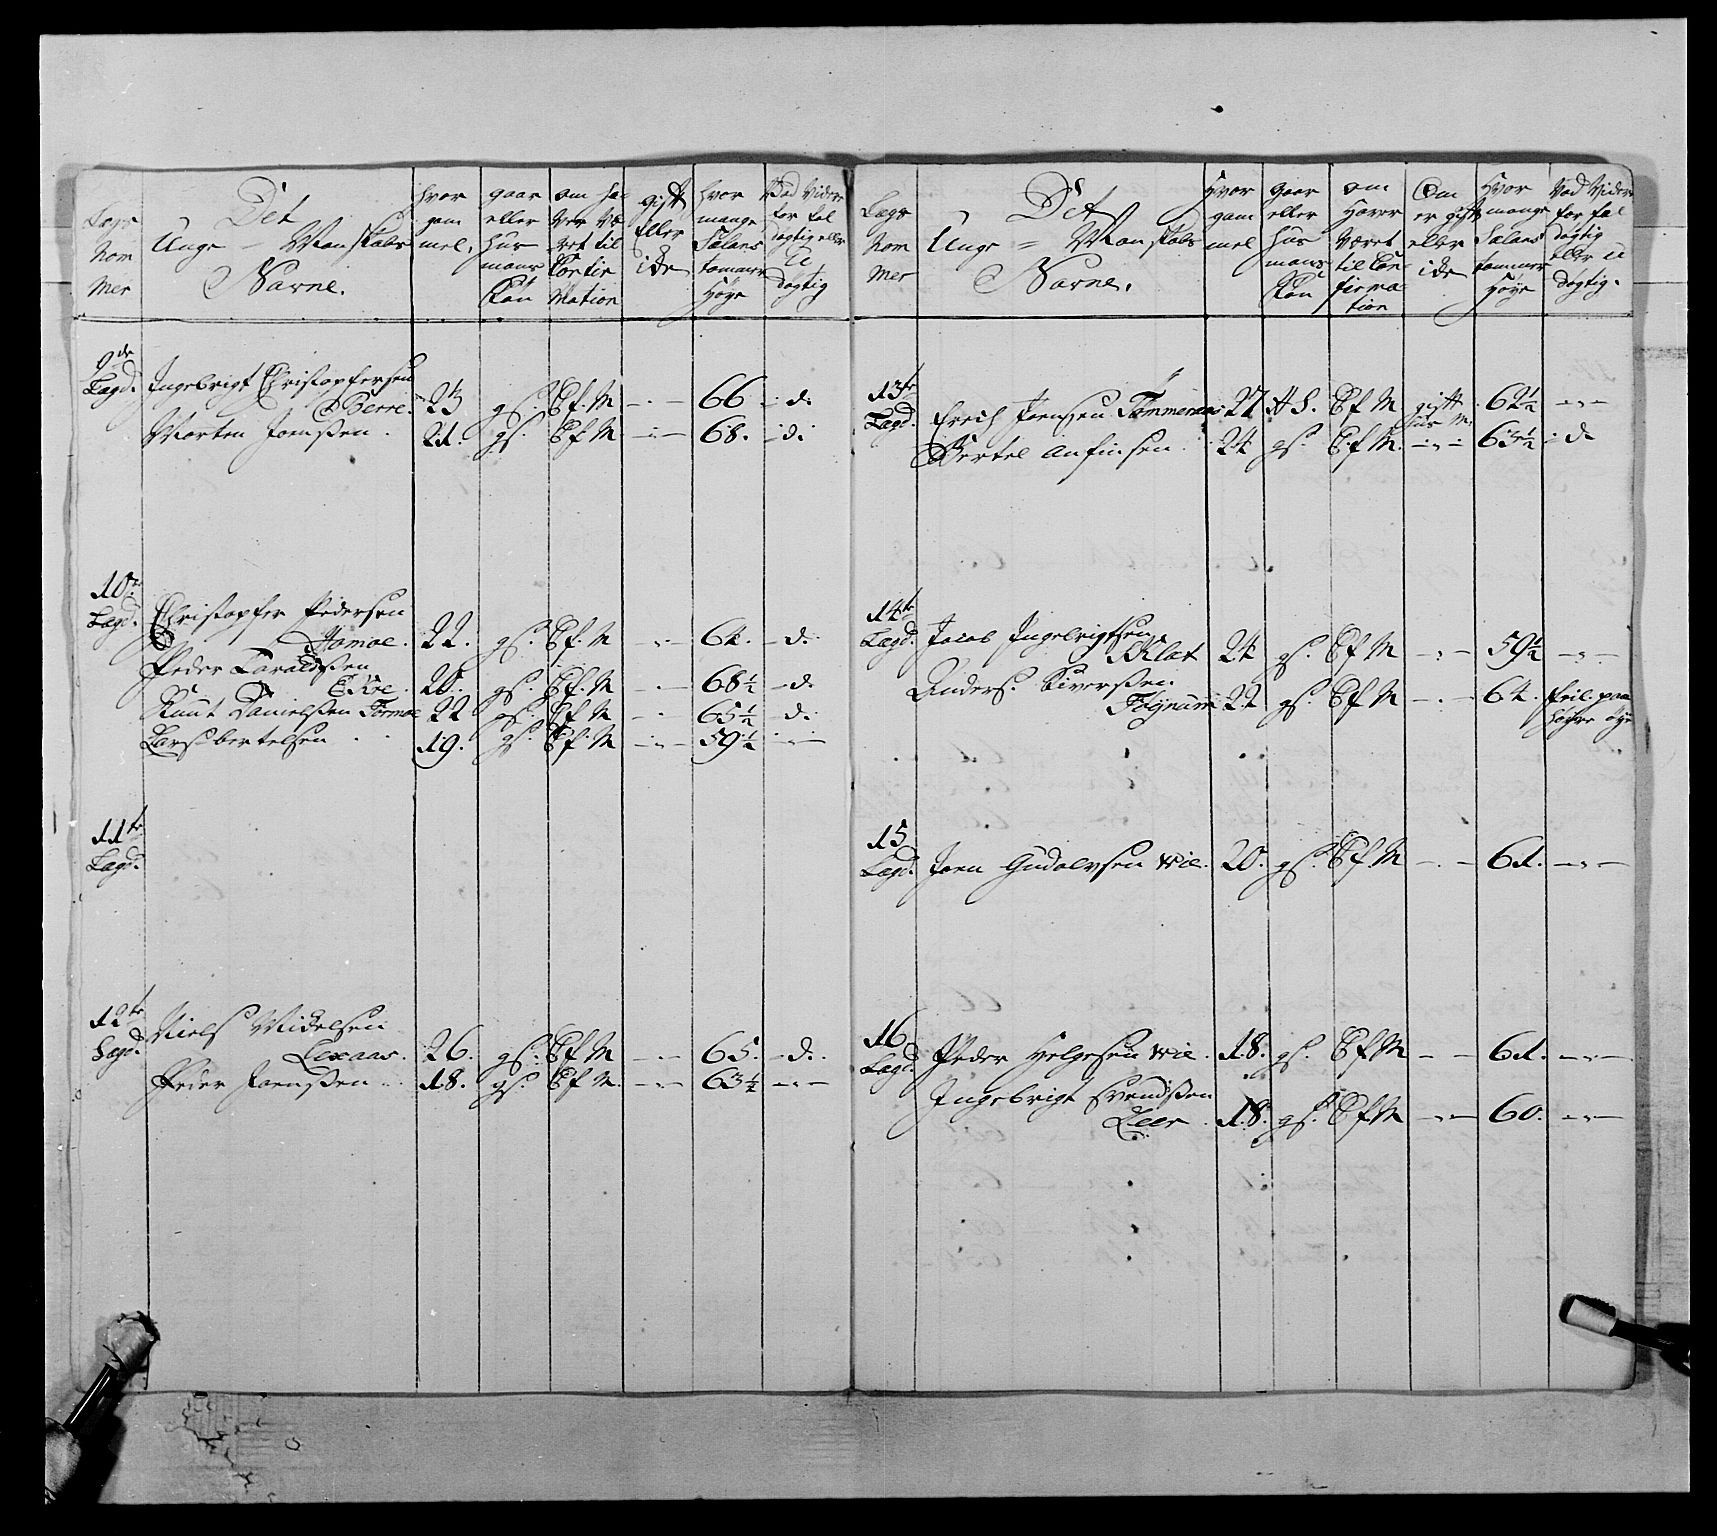 Lægs Nom mer
Det Unge = Mandskabs Navne.
hvor gam mel.
gaar eller Huus mans Søn
om ha ver væ ret til Confir Mation
gift Eller ide
hvor mange Sælans tommer Høye
Vad Videre for fal dygtig eller U dygtig
9de Lægd. Ingebrigt Christophersen
Berre. 23 gS. C f. M - . - 66 - d.
Morten Joensen. 21. gS. C f M - . - 68. - d.
10de Lægd. Christopfer Pedersen
Homoe. 22. gS. C f. M - . - 64. - d.
Peder Taraldsen
20. gS. C f. M - . - 68½ - d.
Knut Danielsen Formoe 22 gS. C f M - . - 65½ - d.
Lars bertelsen 19. gS. C f. M - . - 59½ - . -
11te Lægd.
12te Lægd. Niels Mickelsen
Lexaas. 26. gS. C f M - . - 65. - d.
Peder Joensen 18. gS. C f M. - . - 63½ - . -
Lægs Nom Mer
Det Unge = Mandskabs Navne.
Hvor gam mel
gaar eller Hus mans Søn
om Haver Været til Con firma tion
Om er gift eller ide
Hvor mange Sælans tommer Høye
Vad Videre for fal dygtig eller U dygtig.
13te Lægd. Erich Joensen Tømmeraas 27 H S. C f M gift hus M. 62½ - . -
Bertel Anfinsen 24 gS. C f M. - . - 63½ - d
14te Lægd. Jacob Ingebrigtsen
Klæt 24 gS. C f M - . - 59½ - . -
Anders Siversen
22 gS. C f M - . - 64. feil paa høyre øye
15 Lægd. Joen Gudolvsen Wie. 20. gS. C f M - . - 61. - . -
16 Lægd. Peder Helgesen Wie. 18. gS. C f M - - 61. - . -
Ingebrigt Svendsen
Leer 18. gS. C f M - . - 60. - . -